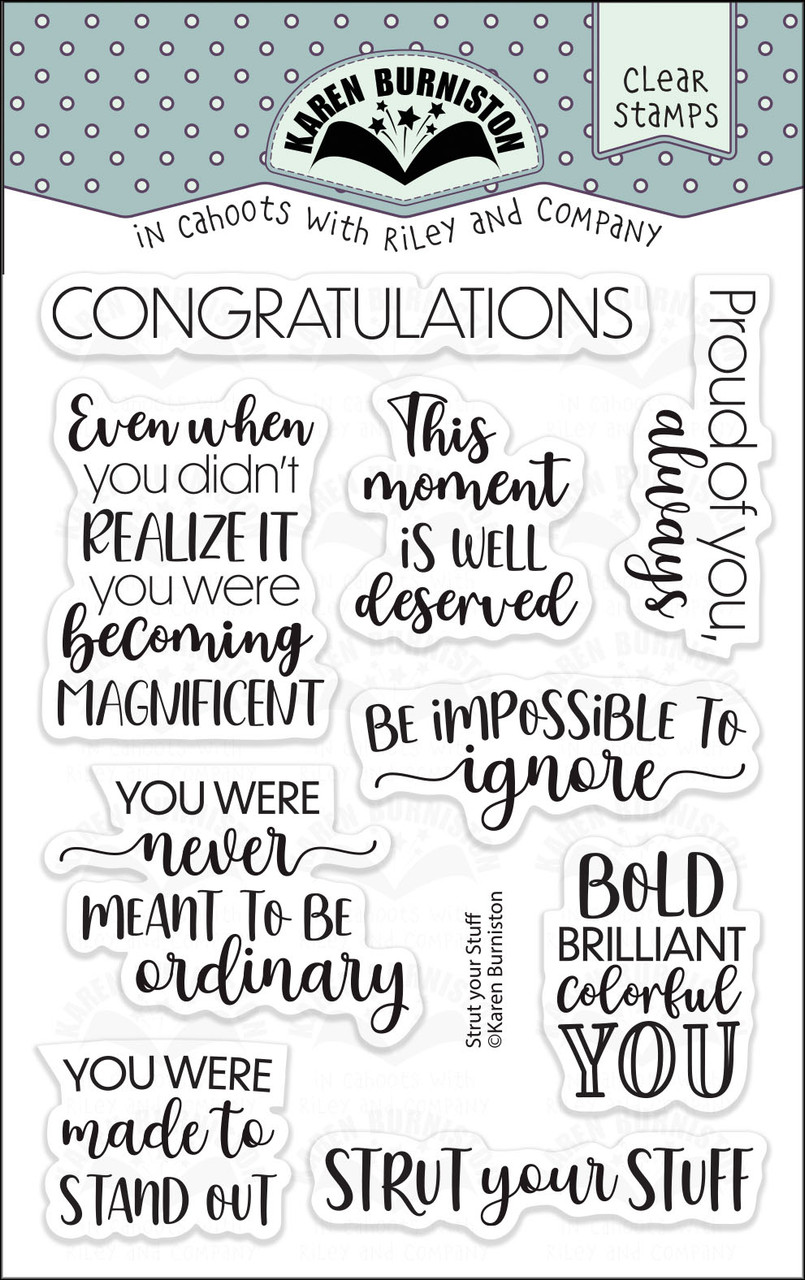 KAREN BURNISTON
CLEAR
STAMPS
in cahoots with Riley and Company
CONGRATULATIONS
Proud of you,
always
Even when
you didn't
REALIZE IT
you were
becoming
MAGNIFICENT
This
moment
iS WELL
deserved
BE iMPOSSiBLE To
ignore
YOU WERE
never
MEANT To BE
ordinary
Strut your Stuff
©Karen Burniston
BoLD
BRILLIANT
colorful
YOU
YOU WERE
made to
STAND oUT
STRUT your STUFF